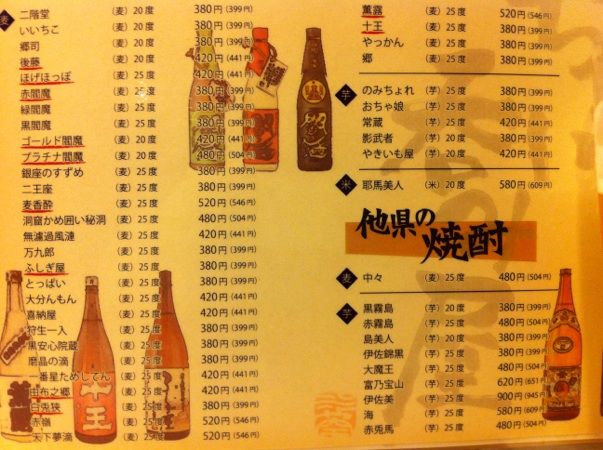 麦 二階堂 (麦) 20度 380円 (399円)
いいちこ (麦) 20度 380円 (399円)
郷司 (麦) 25度 380円 (399円)
後藤 (麦) 20度 420円 (441円)
ほげほっぽ (麦) 25度 420円 (441円)
赤閻魔 (麦) 25度 380円 (399円)
緑閻魔 (麦) 25度 380円 (399円)
黒閻魔 (麦) 25度 380円 (399円)
ゴールド閻魔 (麦) 20度 420円 (441円)
プラチナ閻魔 (麦) 20度 480円 (504円)
銀座のすずめ (麦) 25度 380円 (399円)
二王座 (麦) 25度 380円 (399円)
麦香酔 (麦) 25度 520円 (546円)
洞窟かめ囲い秘洞 (麦) 25度 480円 (504円)
無濾過風漣 (麦) 25度 420円 (441円)
万九郎 (麦) 25度 380円 (399円)
ふしぎ屋 (麦) 25度 380円 (399円)
とっぱい (麦) 25度 420円 (441円)
大分んもん (麦) 25度 380円 (399円)
喜納屋 (麦) 25度 420円 (441円)
狩生一入 (麦) 25度 380円 (399円)
黒安心院蔵 (麦) 25度 420円 (441円)
磨晶の滴 (麦) 25度 420円 (441円)
一番星ためしてん (麦) 25度 420円 (441円)
由布之郷 (麦) 25度 420円 (441円)
白兎狭 (麦) 25度 380円 (399円)
赤嶺 (麦) 25度 520円 (546円)
天下夢滴 (麦) 25度 520円 (546円)
薫露 (麦) 25度 520円 (546円)
十王 (麦) 25度 380円 (399円)
やっかん (麦) 25度 380円 (399円)
郷 (麦) 25度 380円 (399円)
芋 のみちょれ (芋) 25度 380円 (399円)
おちゃ娘 (芋) 25度 380円 (399円)
常蔵 (芋) 25度 420円 (441円)
影武者 (芋) 20度 420円 (441円)
やきいも屋 (芋) 25度 420円 (441円)
米 耶馬美人 (米) 20度 580円 (609円)
他県の
焼酎
麦 中々 (麦) 25度 480円 (504円)
芋 黒霧島 (芋) 20度 380円 (399円)
赤霧島 (芋) 25度 480円 (504円)
島美人 (芋) 20度 380円 (399円)
伊佐錦黒 (芋) 25度 380円 (399円)
大魔王 (芋) 25度 480円 (504円)
富乃宝山 (芋) 25度 620円 (651円)
伊佐美 (芋) 25度 900円 (945円)
海 (芋) 25度 580円 (609円)
赤兎馬 (芋) 25度 480円 (504円)